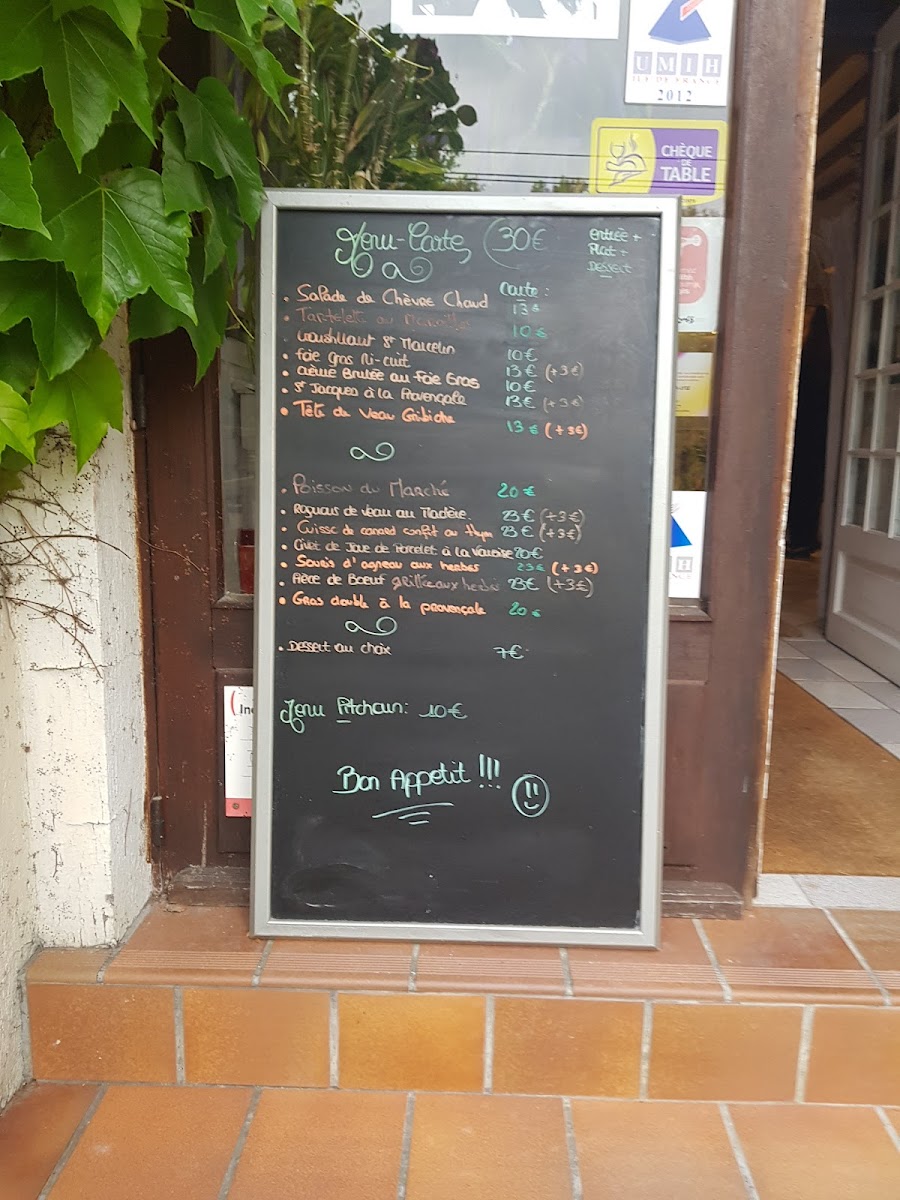 UMIH
ILE DE FRANCE
2012
CHÈQUE
DE
TABLE
Menu-Carte 30€
Entrée +
Plat +
Dessert
Carte :
. Salade de Chèvre Chaud 13€
. Tartelette au 10€
. croustillant St Marcelin 10€
. foie gras Mi-cuit 13€ (+3€)
. crème Brulée au foie Gras 10€
. St Jacques à la Provençale 13€ (+3€)
. Tête de Veau Gribiche 13€ (+3€)
. Poisson du Marché 20€
. Rognons de veau au Madère 23€ (+3€)
. Cuisse de canard confit au thym 23€ (+3€)
. Civet de Joue de Porcelet à la Vauroise 20€
. Souris d'agneau aux herbes 23€ (+3€)
. Pièce de Boeuf grillée aux herbes 23€ (+3€)
. Gras double à la provençale 20€
. Dessert au choix 7€
Menu Pitchoun: 10€
Bon Appetit !!!